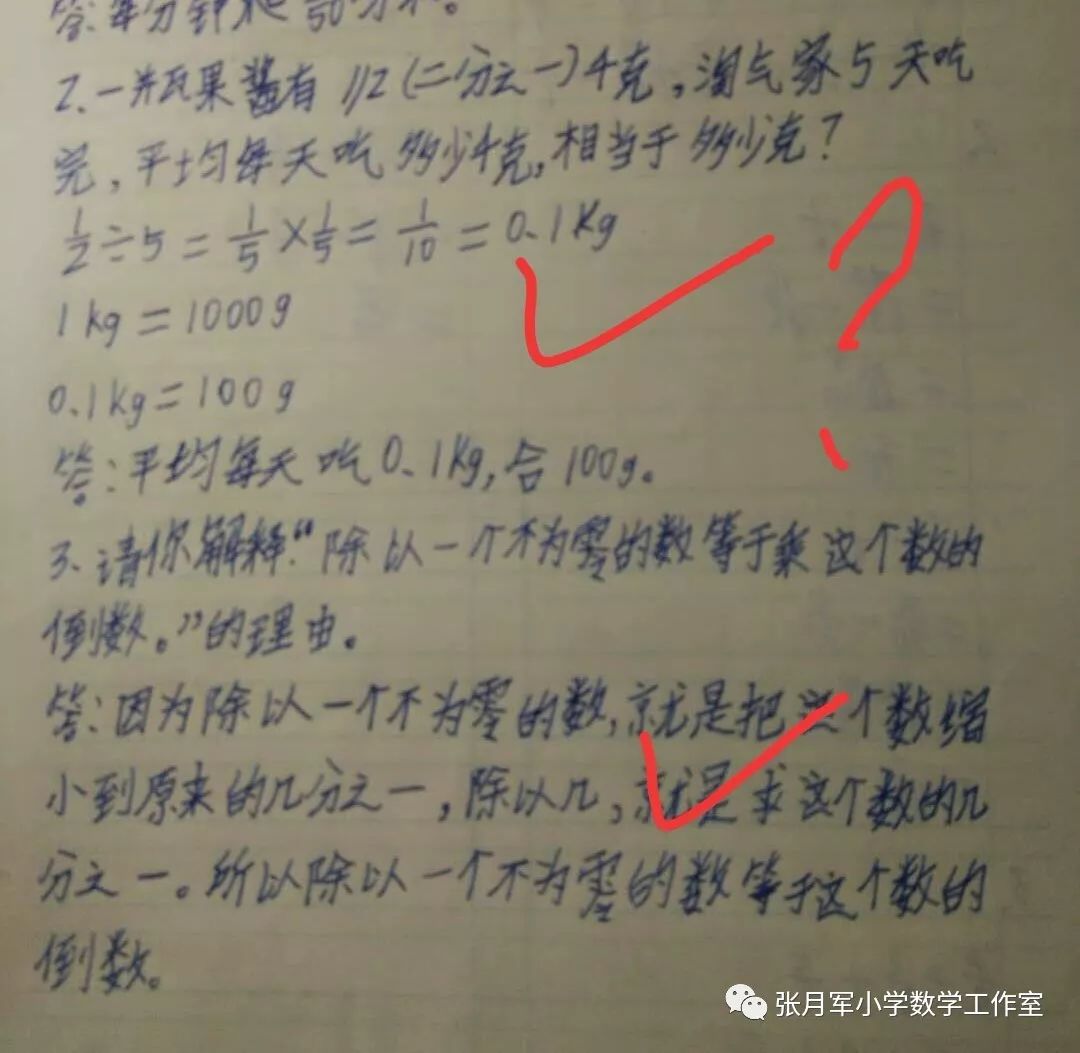 答:每分钟爬 50分米。
2.一并瓦果酱有 1/2(二分之一)千克,淘气家5天吃
完,平均每天吃多少千克,相当于多少克?
1/2÷5=1/5×1/5=1/10=0.1Kg
1kg=1000g
0.1kg=100g
答:平均每天吃0.1Kg,合100g。
3.请你解释“除以一个不为零的数等于乘这个数的
倒数。”的理由。
答:因为除以一个不为零的数,就是把这个数缩
小到原来的几分之一,除以几,就是求这个数的几
分之一。所以除以一个不为零的数等于这个数的
倒数。
张月军小学数学工作室